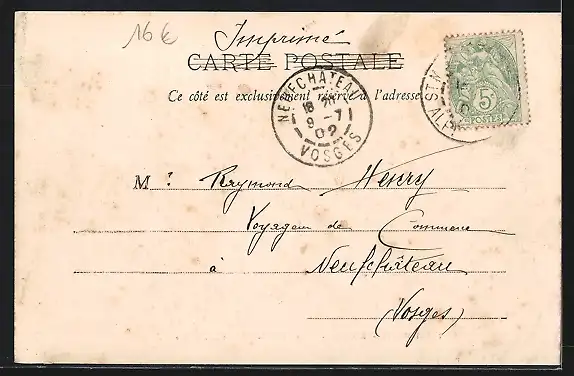 16 €
Imprimé
CARTE POSTALE
Ce côté est exclusivement réservé à l'adresse
NEUFCHATEAU
18 20
9 -7
02
VOSGES
ST M
ALP
5c
POSTES
M. r Raymond Henry
Voyageur de Commerce
à Neufchâteau
(Vosges)